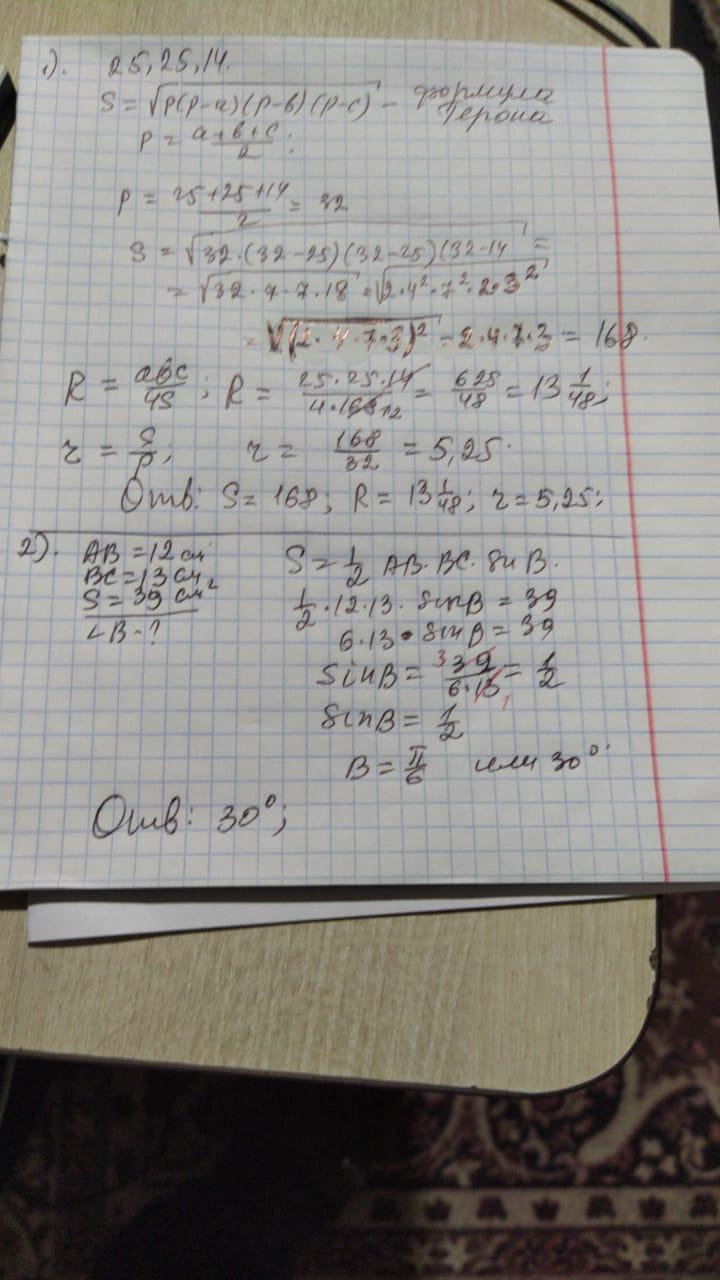 1). 25, 25, 14.
S = √p(p-a)(p-b)(p-c) - формула Герона
p = a+b+c/2;
p = 25+25+14/2 = 32
S = √32·(32-25)(32-25)(32-14 =
= √32·7·7·18 = √2·4²·7²·2·3² 
= √(2·4·7·3)² = 2·4·7·3 = 168.
R = abc/4S; R = 25·25·14/4·168 12 = 625/48 = 13 1/48;
r = S/p; r = 168/32 = 5,25.
Отв: S = 168; R = 13 1/48; r = 5,25;
2). AB = 12 см
BC = 13 см
S = 39 см²
∠B - ?
S = 1/2 AB·BC·sin B.
1/2·12·13·sinB = 39
6·13·sinB = 39
sinB = 3 39/6·13 1 = 1/2
sinB = 1/2
B = π/6 или 30°.
Отв: 30°;